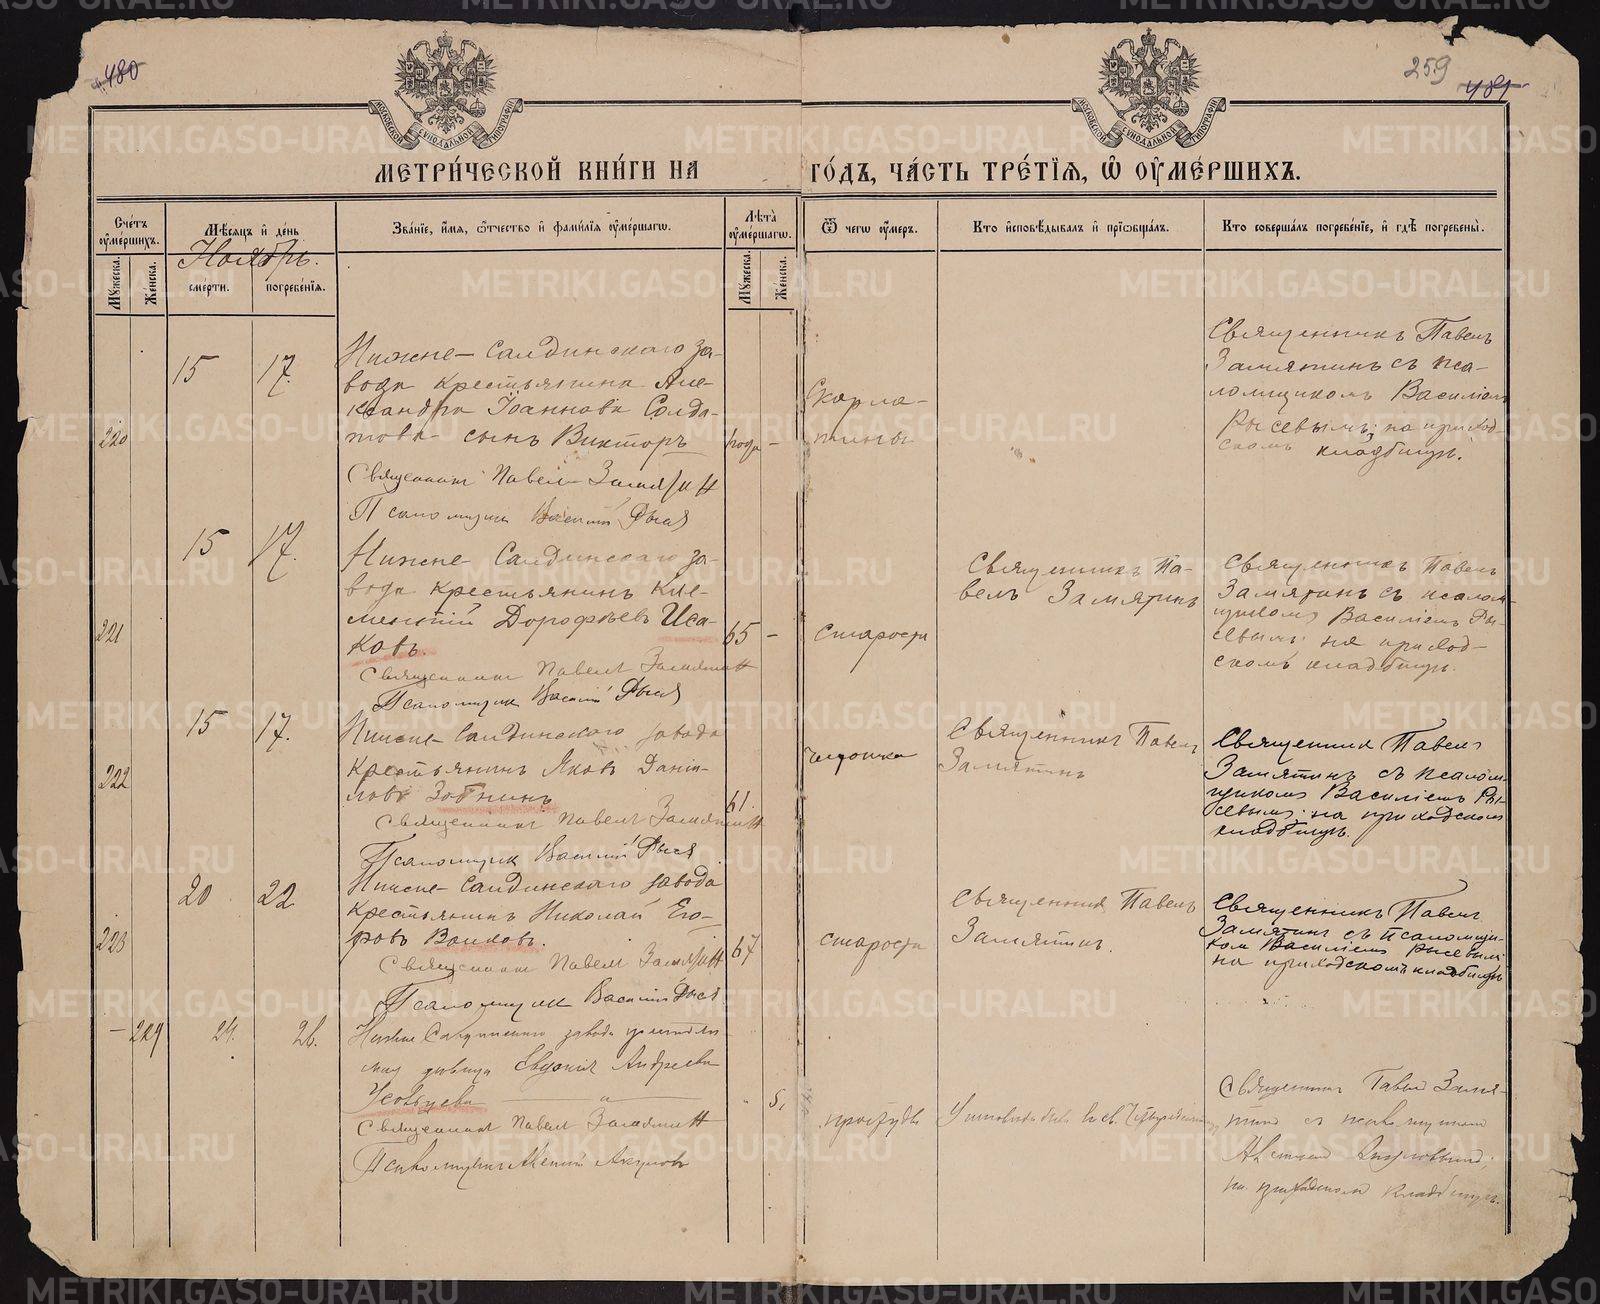 480
259
481
МОСКОВСКОЙ СѴНОДАЛЬНОЙ ТИПОГРАФІИ
МОСКОВСКОЙ СѴНОДАЛЬНОЙ ТИПОГРАФІИ
МЕТРИ́ЧЕСКОЙ КНИ́ГИ НА ГО́ДЪ, ЧА́СТЬ ТРЕ́ТІѦ, Ѡ҆ ОУ҆МЕ́РШИХЪ.
Сче́тъ оу҆ме́ршихъ.
Мꙋ́жеска.
Же́нска.
Мѣ́сѧцъ и҆ де́нь
Ноябрь.
сме́рти.
погребе́нїѧ.
Зва́нїе, и҆́мѧ, ѻ҆́тчество и҆ фамѝлїѧ оу҆ме́ршагѡ.
Лѣ́та оу҆ме́ршагѡ.
Мꙋ́жеска.
Же́нска.
Ѿ чегѡ̀ оу҆́меръ.
Кто̀ и҆сповѣ́дывалъ и҆ прїѡбща́лъ.
Кто̀ соверша́лъ погребе́нїе, и҆ гдѣ̀ погребены̀.
220
15
17.
Нижне-Салдинскаго за-
вода крестьянина Але-
ксандра Іоаннова Солда-
това сынъ Викторъ
Священникъ Павелъ Замятин
Псаломщик Василій Рысев
года -
Скарла-
тины
Священникъ Павелъ
Замятинъ съ пса-
ломщикомъ Василіем
Рысевымъ; на приход-
скомъ кладбищѣ.
221
15
17.
Нижне-Салдинскаго за-
вода крестьянинъ Кле-
ментій Дорофѣевъ Иса-
ковъ.
Священникъ Павелъ Замятин
Псаломщик Василій Рысев
65 -
старости
Священникъ Па-
велъ Замятинъ
Священникъ Павелъ
Замятинъ съ псалом-
щикомъ Василіемъ Ры-
севымъ; на приход-
скомъ кладбищѣ.
222
15
17.
Нижне-Салдинскаго завода
крестьянинъ Яковъ Даніи-
ловъ Зобнинъ
Священникъ Павелъ Замятин
Псаломщик Василій Рысев
61.
чахотка
Священникъ Павелъ
Замятинъ
Священникъ Павелъ
Замятинъ съ псалом-
щикомъ Василіемъ Ры-
севымъ; на приходском
кладбищѣ.
223
20
22
Нижне-Салдинскаго завода
крестьянинъ Николай Его-
ровъ Волковъ.
Священникъ Павелъ Замятин
Псаломщик Василій Рысев
67
старости
Священникъ Павелъ
Замятинъ.
Священникъ Павелъ
Замятинъ съ псаломщи-
комъ Василіемъ Рысевымъ
на приходскомъ кладбищѣ
- 224
24.
26.
Нижне Салдинскаго завода
дѣвица Евдокія Андреева
Усольцева
Священникъ Павелъ Замятин
Псаломщикъ
простуды
Священникъ Павелъ Замя-
тинъ съ псаломщикомъ
на приходскомъ кладбищѣ.
METRIKI.GASO-URAL.RU